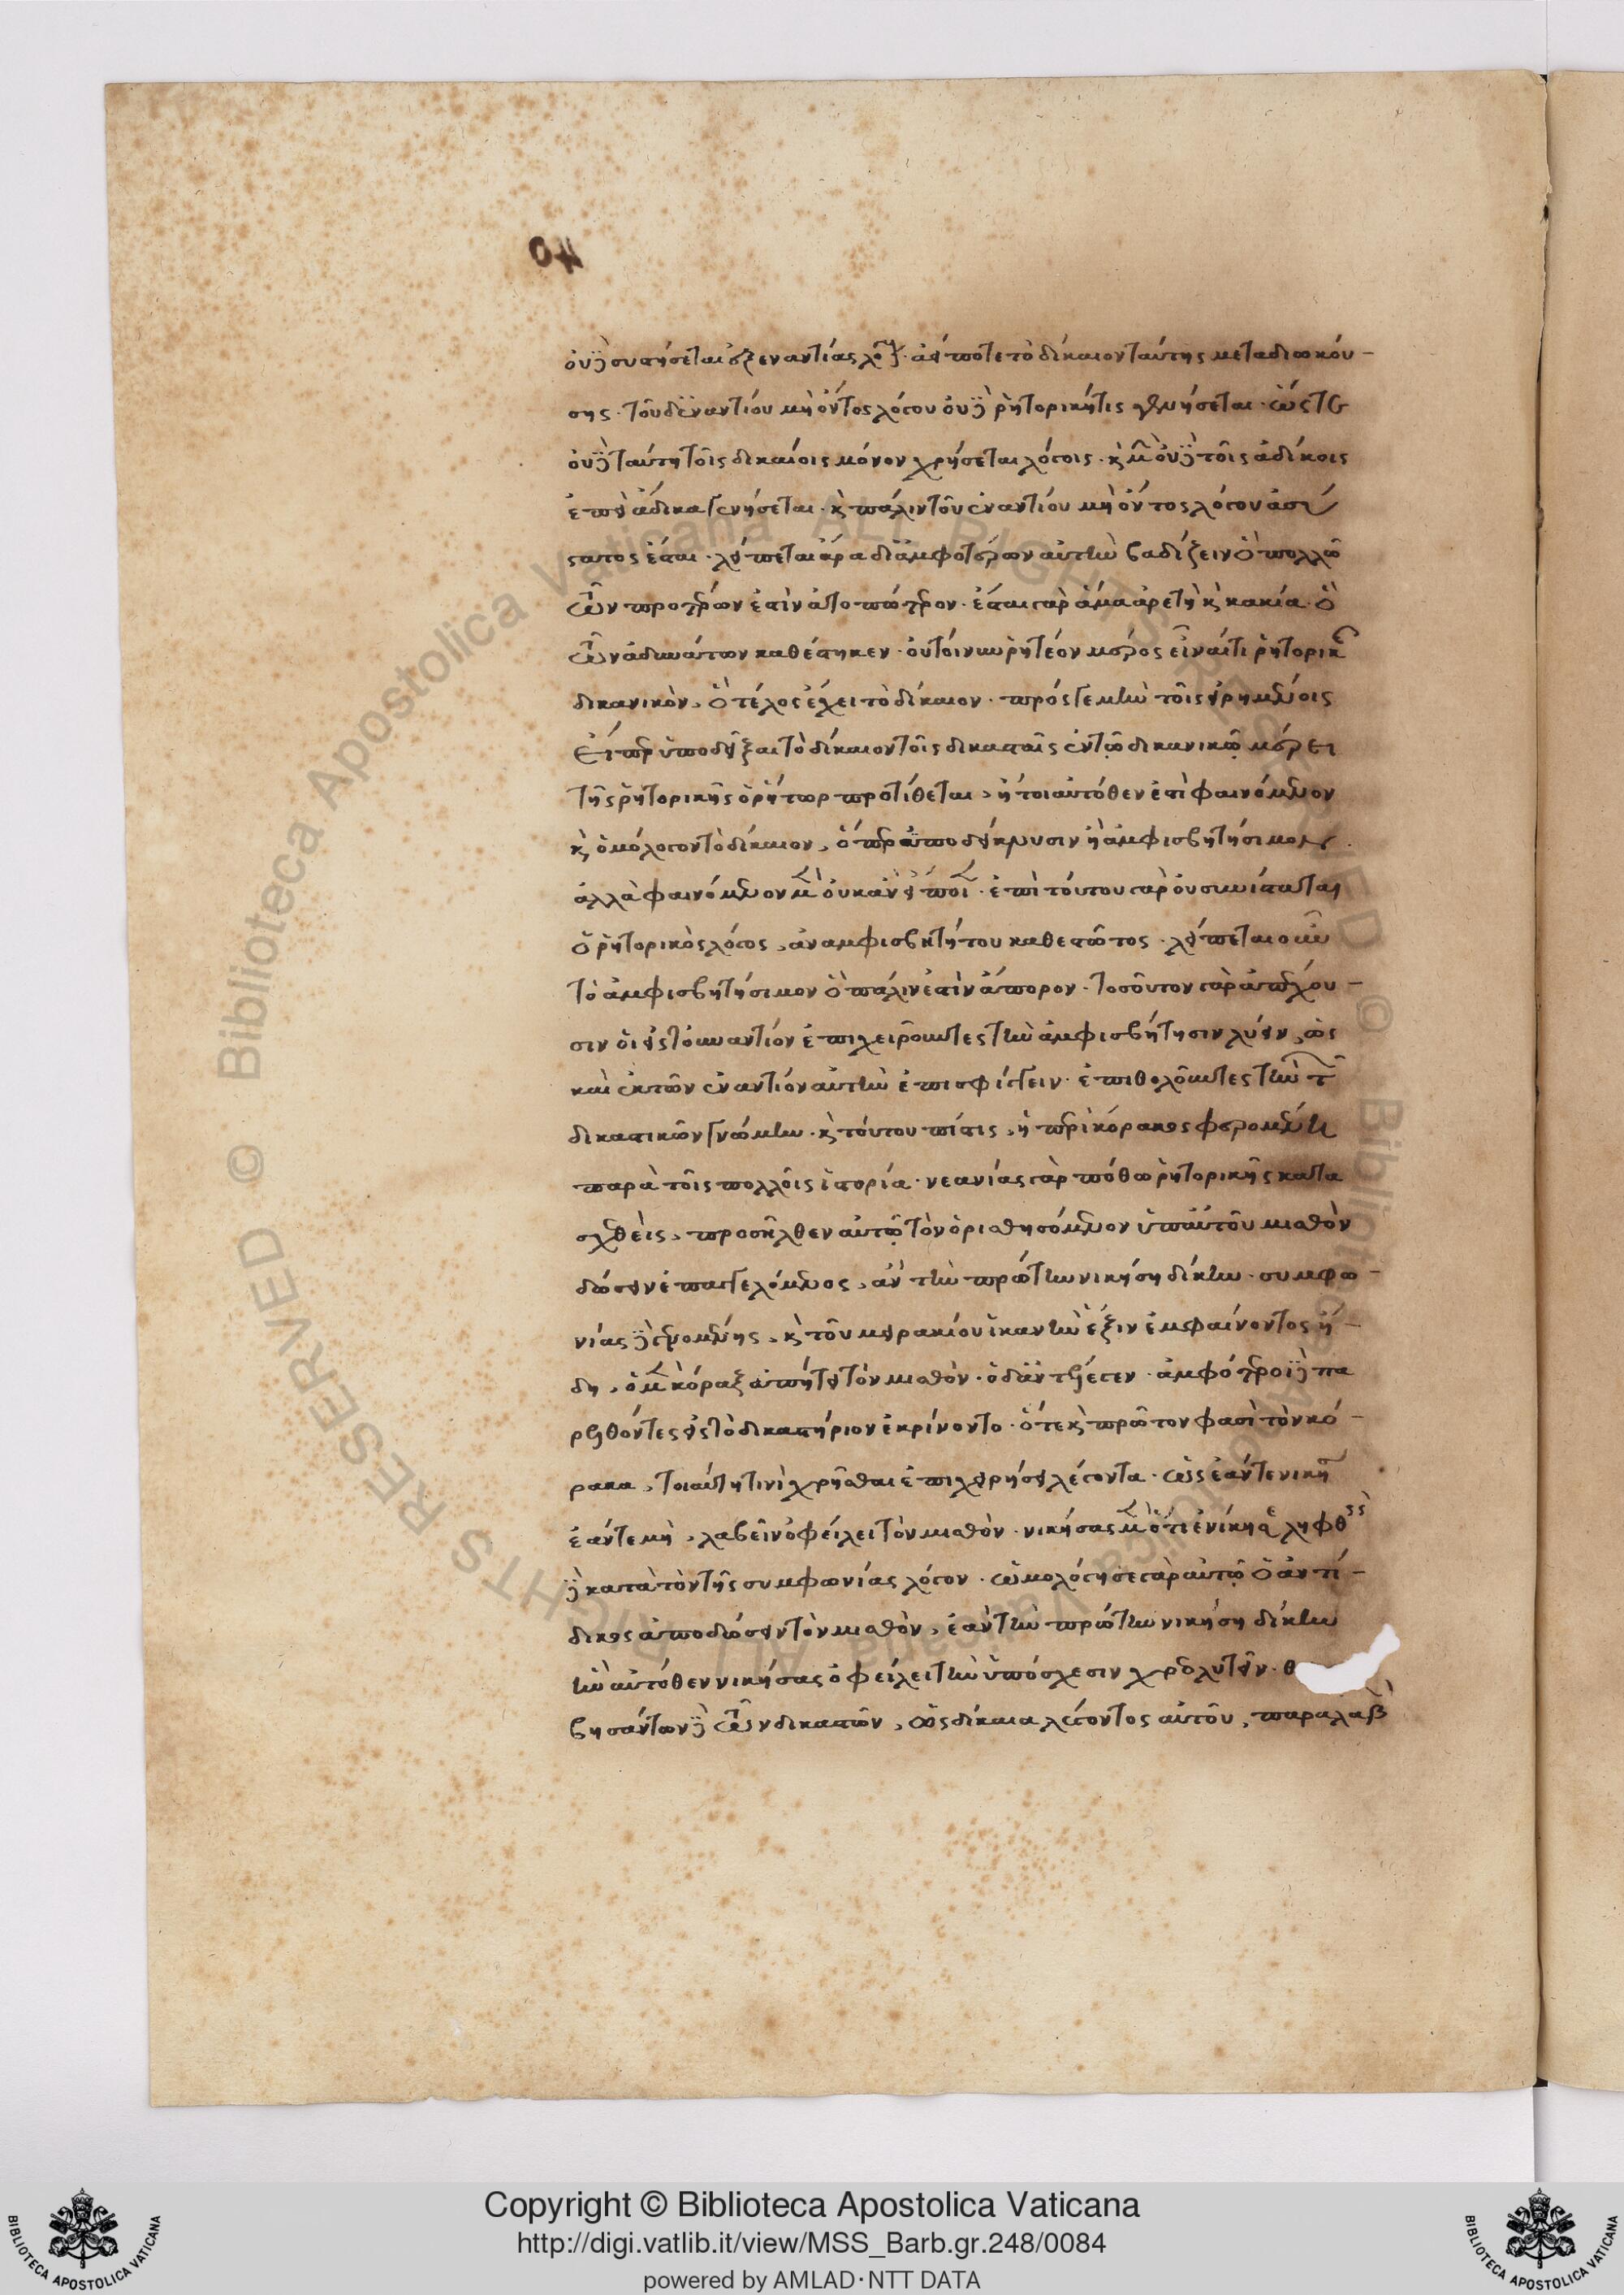 οὐδὲ συστήσεται ἐξ ἐναντίας λόγος. ἀεί ποτε τὸ δίκαιον ταύτης μεταδιωκού-
σης. τοῦ δ' ἐναντίου μὴ ὄντος λόγου οὐδὲ ῥητορική τις γενήσεται. ὥστε
οὐδὲ ταύτῃ τοῖς δικαίοις μόνον χρήσεται λόγοις. καὶ μὴν οὐδὲ τοῖς ἀδίκοις
ἐπεὶ ἄδικος γενήσεται. καὶ πάλιν τοῦ ἐναντίου μὴ ὄντος λόγου ἀσύ
στατος ἔσται. λείπεται ἄρα δι' ἀμφοτέρων αὐτὴν βαδίζειν ὃ πολλῷ
τῶν προτέρων ἐστὶν ἀτοπώτερον. ἔσται γὰρ ἅμα ἀρετὴ καὶ κακία. ὃ
τῶν ἀδυνάτων καθέστηκεν. οὐ τοίνυν ῥητέον μέρος εἶναί τι ῥητορικῆς
δικανικὸν, ὃ τέλος ἔχει τὸ δίκαιον. πρός γε μὴν τοῖς εἰρημένοις
Εἴπερ ὑποδεῖξαι τὸ δίκαιον τοῖς δικασταῖς ἐν τῷ δικανικῷ μέρει
τῆς ῥητορικῆς ὁ ῥήτωρ προτίθεται, ἤτοι αὐτόθεν ἐστὶ φαινόμενον
καὶ ὁμόλογον τὸ δίκαιον, ὅπερ ἀποδείκνυσιν ἢ ἀμφισβητήσιμον.
ἀλλὰ φαινόμενον μὲν οὐκ ἂν εἴποιεν. ἐπὶ τούτου γὰρ οὐ συνίσταται
ὁ ῥητορικὸς λόγος, ἀναμφισβητήτου καθεστῶτος. λείπεται οὖν
τὸ ἀμφισβητήσιμον ὃ πάλιν ἐστὶν ἄπορον. τοσοῦτον γὰρ ἀπέχου-
σιν οἱ εἰς τοὐναντίον ἐπιχειροῦντες τὴν ἀμφισβήτησιν λύειν, ὡς
καὶ ἐκ τῶν ἐναντίον αὐτὴν ἐπισφίγγειν. ἐπιθολοῦντες τὴν τῶν
δικαστικῶν γνώμην. καὶ τούτου πίστις, ἡ περὶ κόρακος φερομένη
παρὰ τοῖς πολλοῖς ἱστορία. νεανίας γὰρ πόθῳ ῥητορικῆς κατα
σχεθεὶς, προσῆλθεν αὐτῷ τὸν ὁρισθησόμενον ὑπ' αὐτοῦ μισθὸν
δώσειν ἐπαγγελόμενος, ἂν τὴν πρώτην νικήσῃ δίκην. συμφω-
νίας δὲ γενομένης, καὶ τοῦ μειρακίου ἱκανὴν ἕξιν ἐμφαίνοντος ἤ-
δη, ὁ μὲν κόραξ ἀπῄτει τὸν μισθὸν. ὁ δ' ἀντέλεγεν. ἀμφότεροι δὲ πα
ρελθόντες εἰς τὸ δικαστήριον ἐκρίνοντο. ὅτε καὶ πρῶτον φασὶ τὸν κό-
ρακα, τοιαύτῃ τινὶ χρῆσθαι ἐπιχειρήσει λέγοντα. ὡς ἐάν τε νικήσῃ
ἐάν τε μὴ, λαβεῖν ὀφείλει τὸν μισθὸν. νικήσας μὲν ὅτι ἐνίκησε ληφθεὶς
δὲ κατὰ τὸν τῆς συμφωνίας λόγον. ὡμολόγησε γὰρ αὐτῷ ὁ ἀντί-
δικος ἀποδώσειν τὸν μισθὸν, ἐὰν τὴν πρώτην νικήσῃ δίκην
ἣν αὐτόθεν νικήσας ὀφείλει τὴν ὑπόσχεσιν χρεολυτεῖν. θ
βησάντων δὲ τῶν δικαστῶν, ὡς δίκαια λέγοντος αὐτοῦ, παραλαβὼν
Copyright © Biblioteca Apostolica Vaticana
http://digi.vatlib.it/view/MSS_Barb.gr.248/0084
powered by AMLAD·NTT DATA